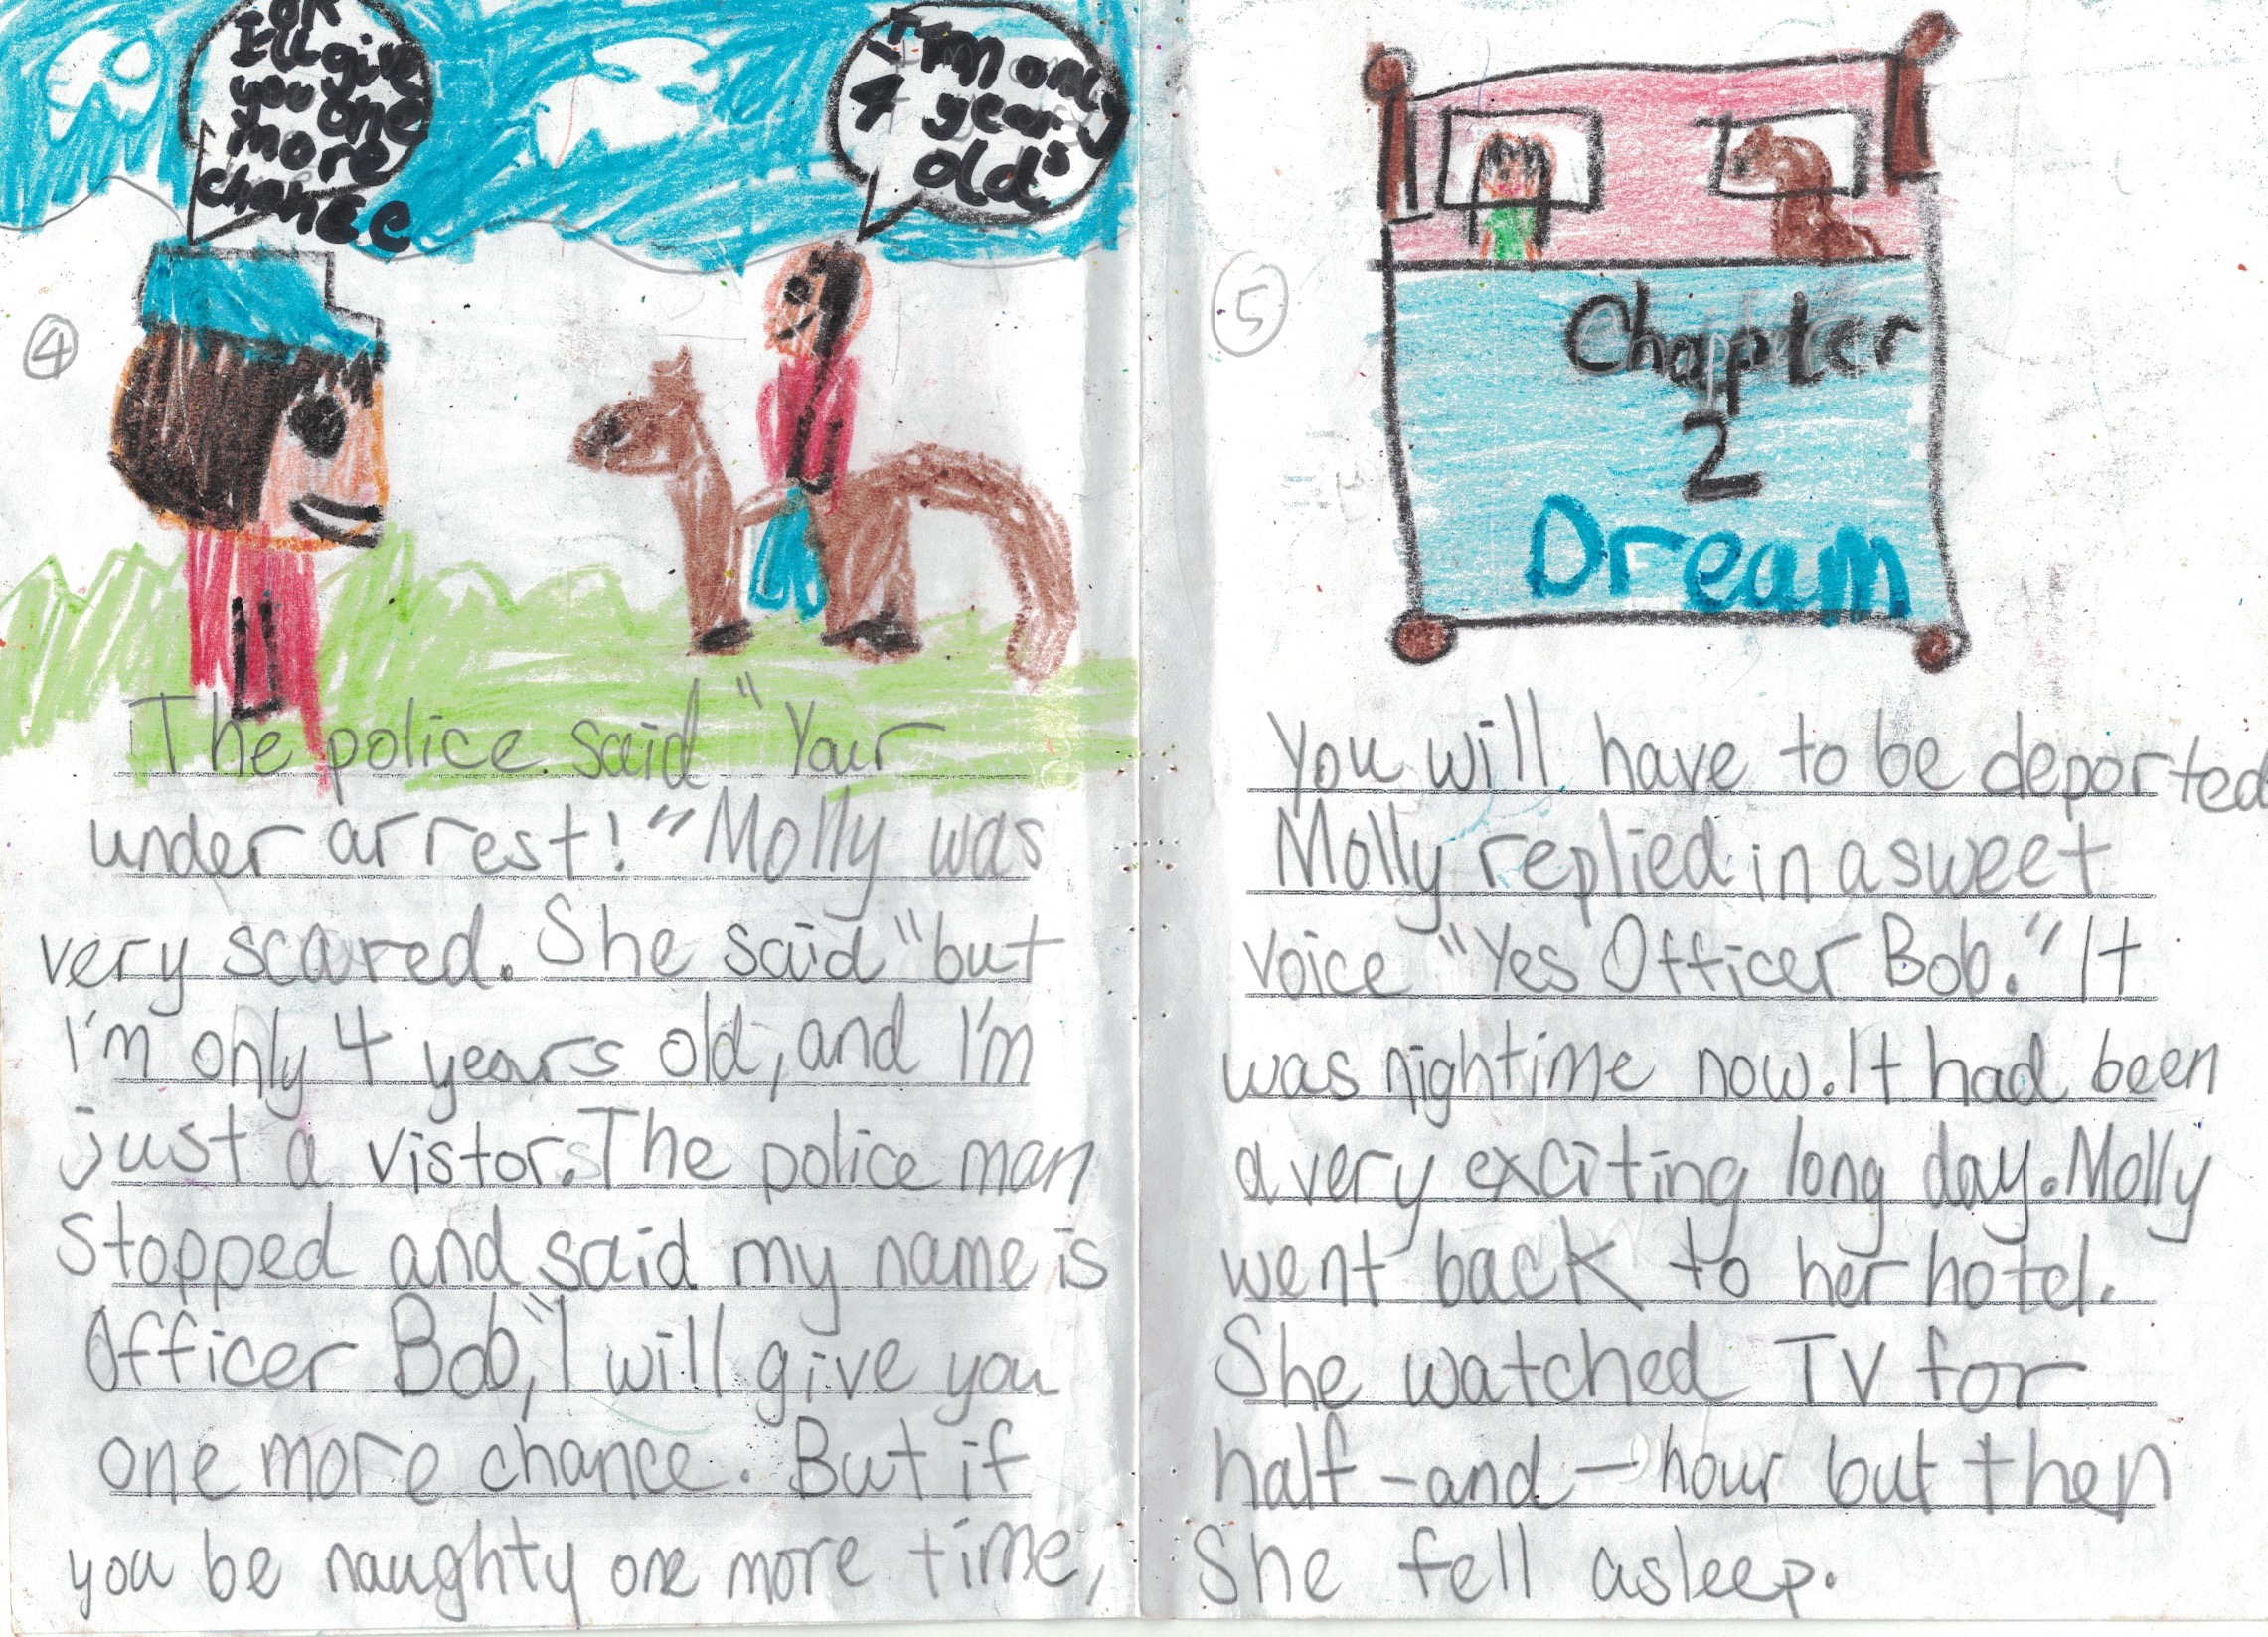 OK
I'll give
you one
more
chance
I'm only
4 years
old
④
The police said "Your
under arrest!" Molly was
very scared. She said "but
I'm only 4 years old, and I'm
just a vistor. The police man
stopped and said my name is
Officer Bob," I will give you
one more chance. But if
you be naughty one more time,
⑤
Chapter
2
Dream
You will have to be deported
Molly replied in a sweet
voice "Yes Officer Bob." It
was nightime now. It had been
a very exciting long day. Molly
went back to her hotel.
She watched TV for
half-and-hour but then
She fell asleep.